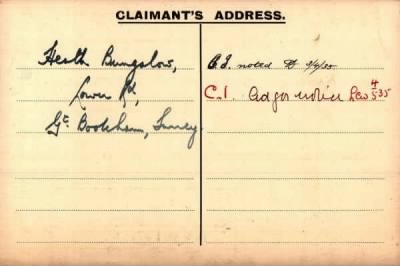 CLAIMANT'S ADDRESS.
Heath Bungalow,
Lower Rd,
Gt. Bookham, Surrey
C.I. noted 9/4/35
C.1. Adgor notice 4/5/35